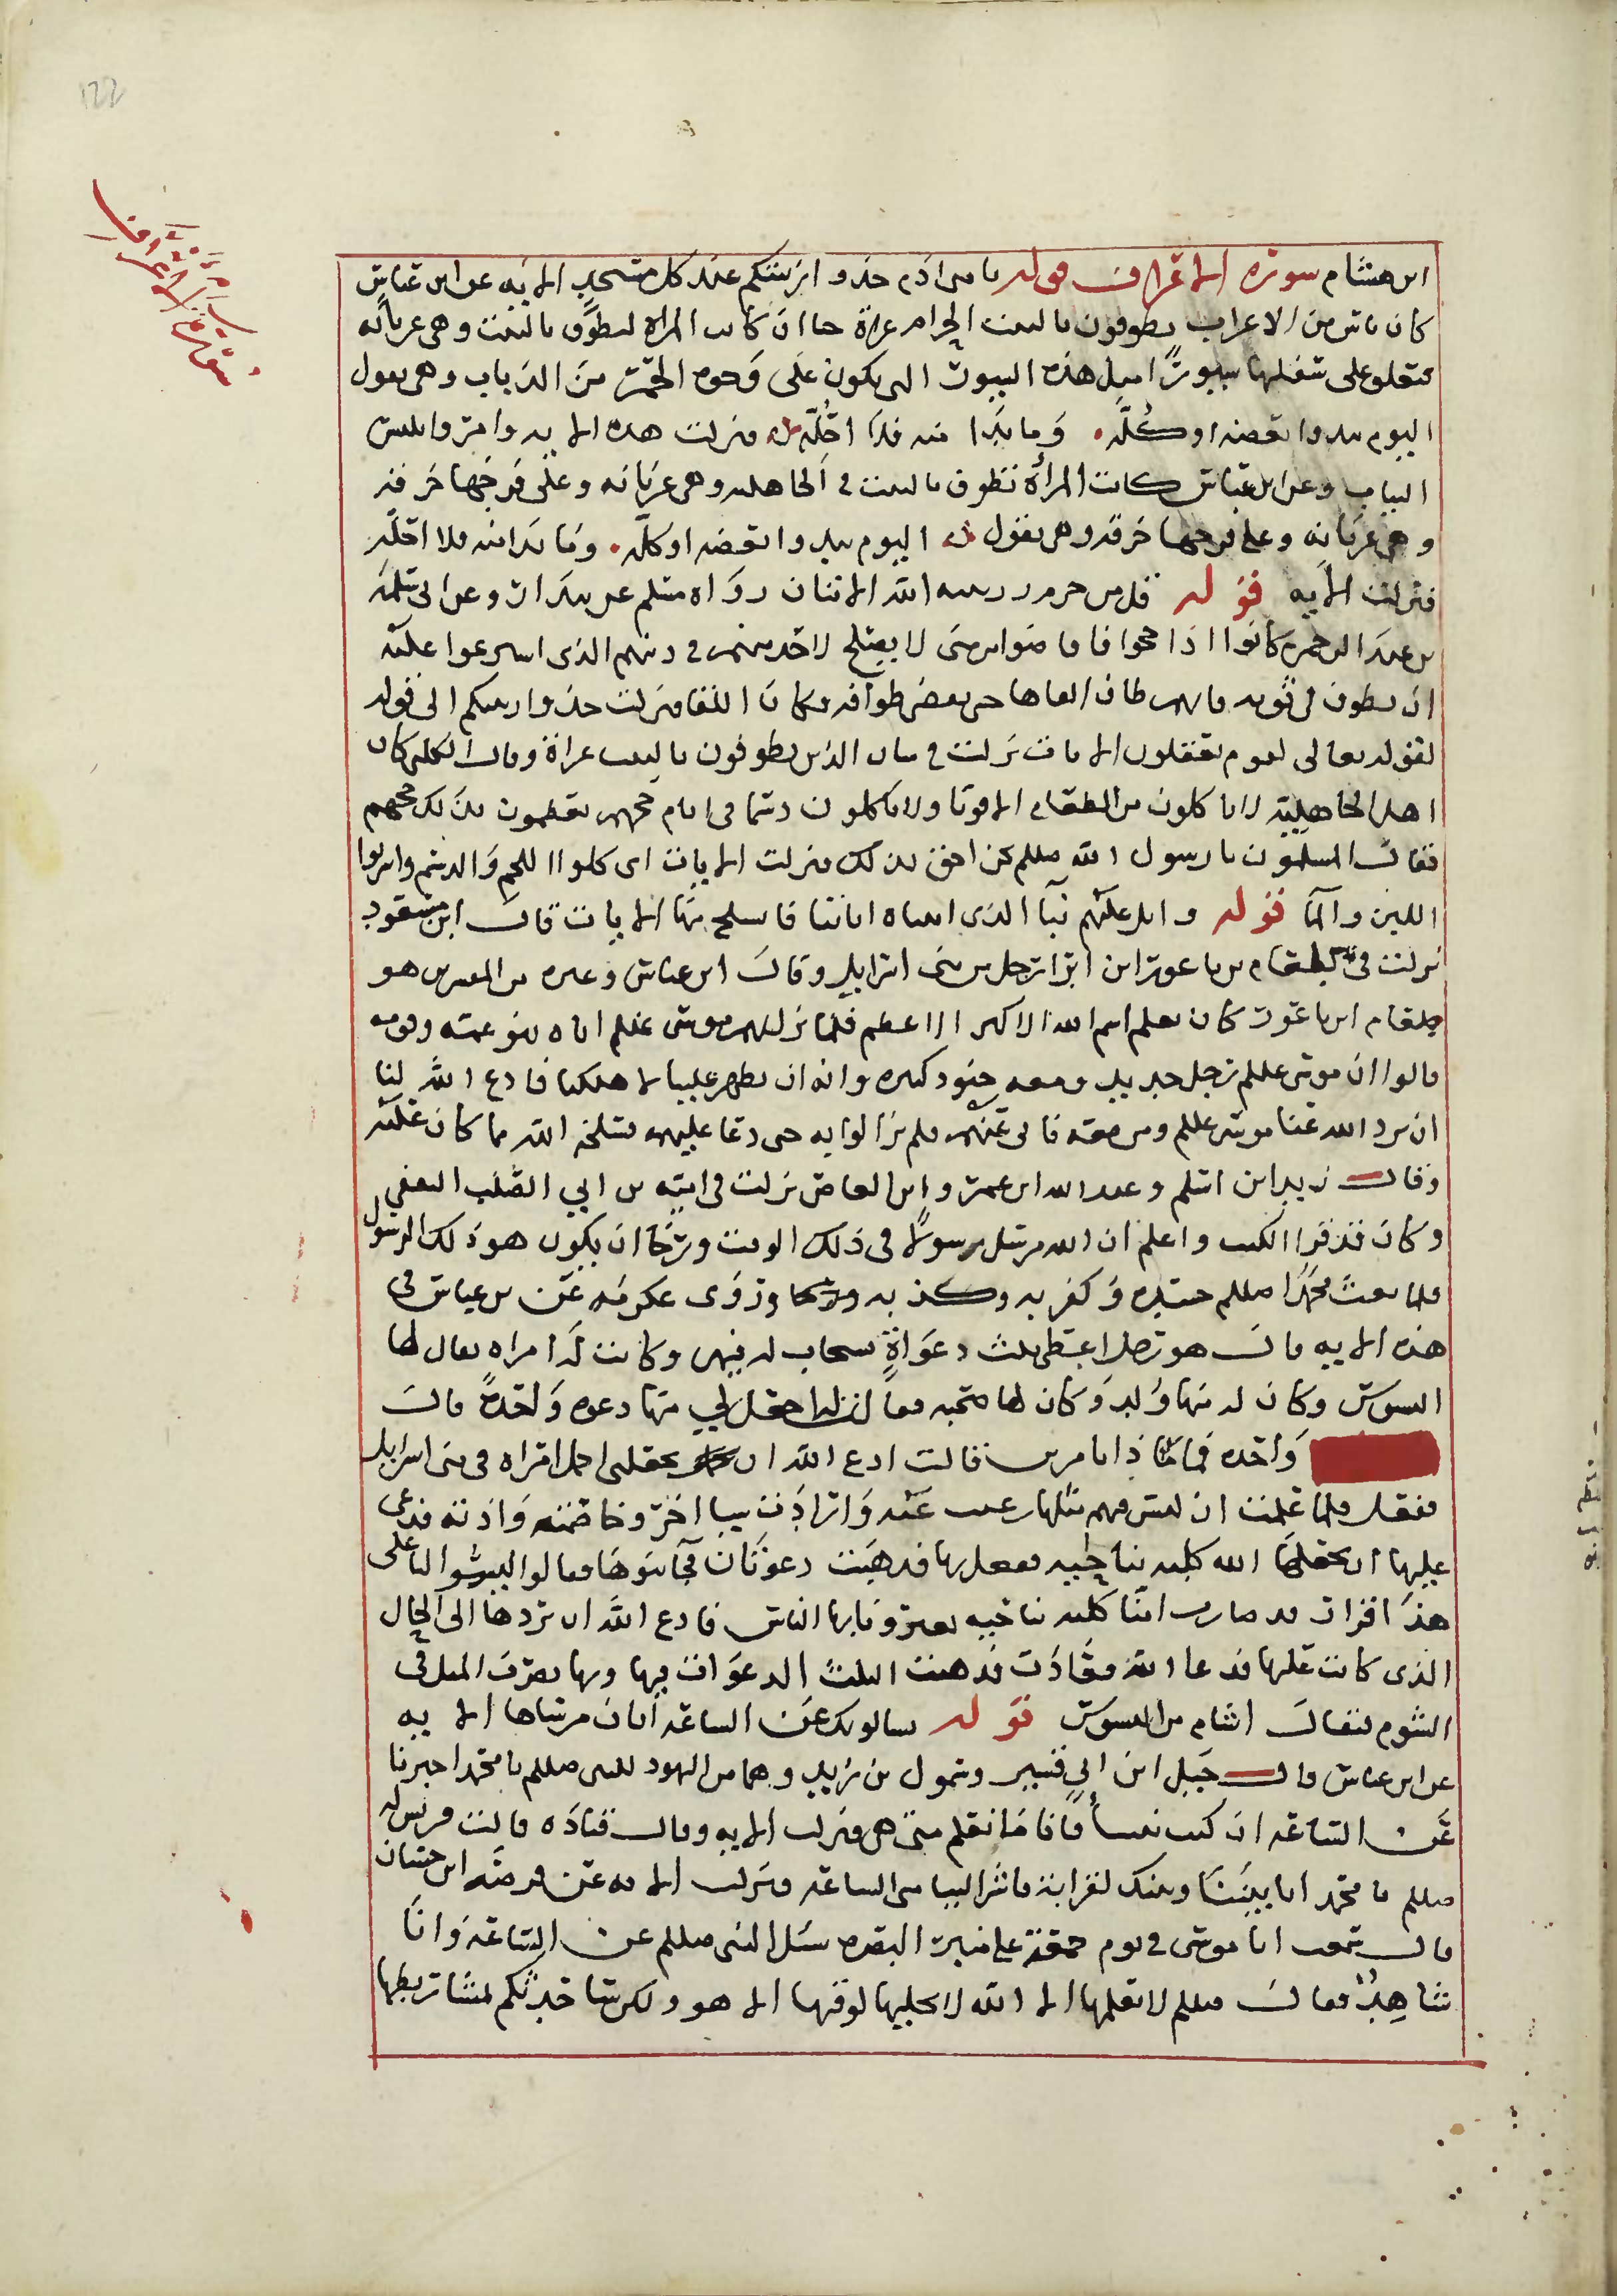 122
ابن هشام سورة الاعراف قوله يا بنى ادم خذوا زينتكم عند كل مسجد الايه عن ابن عباس
كان ناس من الاعراب يطوفون بالبيت الحرام عراة حتا ان كانت المراة لتطوف بالبيت وهى عريانه
فتعلق على سفلها سيورًا مثل هذه السيور التى يكون على وجوه الحمر من الذباب وهى تقول
اليوم يبدوا بعضه او كله وما بدا منه فلا احله فنزلت هذه الايه وامروا بلبس
الثياب وعن ابن عباس كانت المرأة تطوف بالبيت فى الجاهليه وهى عريانه وعلى فرجها خرقه
وهى عريانه وعلى فرجها خرقه وهى تقول اليوم يبدوا بعضه او كله وما بدا منه فلا احله
فنزلت الايه قوله قل من حرم زينه الله الايتان رواه مسلم عن بندار وعن ابى سلمه
بن عبد الرحمن كانوا اذا حجوا فافاضوا من منى لا يصلح لاحد منهم فى دينهم الذى اسرعوا عليه
ان يطوف فى ثوبه فايهم طاف القاها حتى يقضى طوافه وكان اتقا فنزلت خذوا زينتكم الى قوله
لقوله تعالى لقوم يعقلون الايات نزلت فى شان الذين يطوفون بالبيت عراة وقال الكلبى كان
اهل الجاهلية لا ياكلون من الطعام الا قوتا ولا ياكلون دسما فى ايام حجهم يعظمون بذلك حجهم
فقال المسلمون يا رسول الله صللم نحن احق بذلك فنزلت الايات اى كلوا اللحم والدسم واشربوا
اللبن والما قوله واتل عليهم نبأ الذى اتيناه اياتنا فانسلخ منها الايات قال ابن مسعود
نزلت فى بلعام بن باعورا بن ابرا رجل من بنى اسرايل وقال ابن عباس وغيره من المفسرين هو
بلعام ابن باعور كان يعلم اسم الله الاكبر الاعظم فلما نزل بهم موسى عللم اتاه بنو عمه وقومه
قالوا ان موسى عللم رجل حديد ومعه جنود كثيره وانه ان يظهر علينا يهلكنا فادع الله لنا
ان يرد الله عنا موسى عللم ومن معه فابى عنهم فلم يزالوا به حتى دعا عليهم فسلخه الله مما كان عليه
وقال زيد ابن اسلم وعبد الله ابن عمر وابن العاص نزلت فى اميه بن ابي الصلت الثقفي
وكان قد قرا الكتب واعلم ان الله مرسل رسولًا فى ذلك الوقت ورجا ان يكون هو ذلك الرسول
فلما بعث محمدًا صللم حسده وكفر به وكذبه وروى عكرمه عن بن عباس فى
هذه الايه قال هو رجل اعطى ثلث دعواة يستجاب له فيهن وكانت له امراه يقال لها
البسوس وكان له منها ولد وكان لها محبه فقالت له اجعل لي منها دعوه واحدةً قال
واحده فماذا تامرين قالت ادع الله ان يجعلنى اجمل امراه فى بنى اسرايل
ففعل فلما علمت ان ليس فيهم مثلها رغبت عنه وارادت شيا اخر وخاصمته واذته فدعى
عليها ان يجعلها الله كلبه نباحيه ففعل بها فذهبت دعوتان فجا بنوها فقالوا ليس لنا على
هذا اقرار قد صارت امنا كلبه نباحيه يعيرونا بها الناس فادع الله ان يردها الى الحال
الذى كانت عليها فدعا الله فعادت فذهبت الثلث الدعوات فيها وبها يضرب المثل فى
الشوم فيقال اشام من البسوس قوله يسالونك عن الساعه ايان مرساها الايه
عن ابن عباس قال جبل ابن ابى قشير وشمول بن زيد وهما من اليهود للنبى صللم يا محمد اخبرنا
عن الساعه ان كنت نبيًا فانا نعلم متى هى فنزلت الايه وقال قتاده قالت قريش له
صللم يا محمد ان بيننا وبينك لقرابة فاشر الينا متى الساعه فنزلت الايه عن قرضه ابن حسان
قال سمعت ابا موسى فى يوم جمعة على منبر البصره سئل النبى صللم عن الساعه وانا
شاهدٌ فقال صللم لا يعلمها الا الله لا يجليها لوقتها الا هو ولكن ساحدثكم بمشاريطها